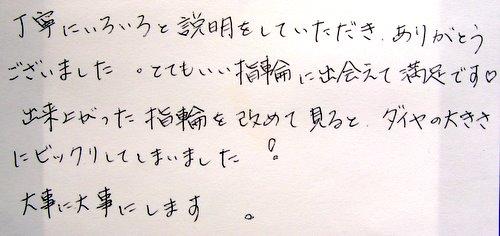 丁寧にいろいろと説明をしていただき、ありがとう
ございました 。とてもいい指輪に出会えて満足です♡
出来上がった指輪を改めて見ると、ダイヤの大きさ
にビックリしてしまいました !
大事に大事にします 。